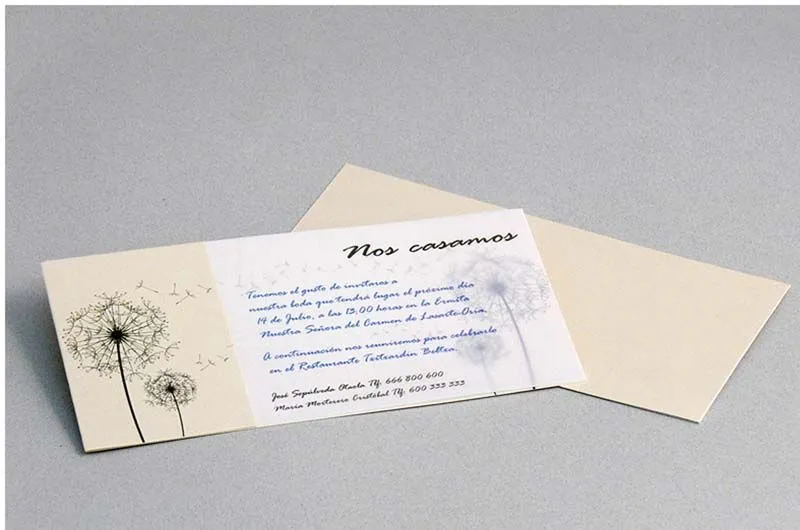 Nos casamos
Tenemos el gusto de invitaros a
nuestra boda que tendrá lugar el próximo día
14 de Julio, a las 13:00 horas en la Ermita
Nuestra Señora del Carmen de Lasarte-Oria.
A continuación nos reuniremos para celebrarlo
en el Restaurante Txitxardin Beltza.
José Sepúlveda Olaola Tlf. 666 800 600
María Cristóbal Tlf. 600 333 333